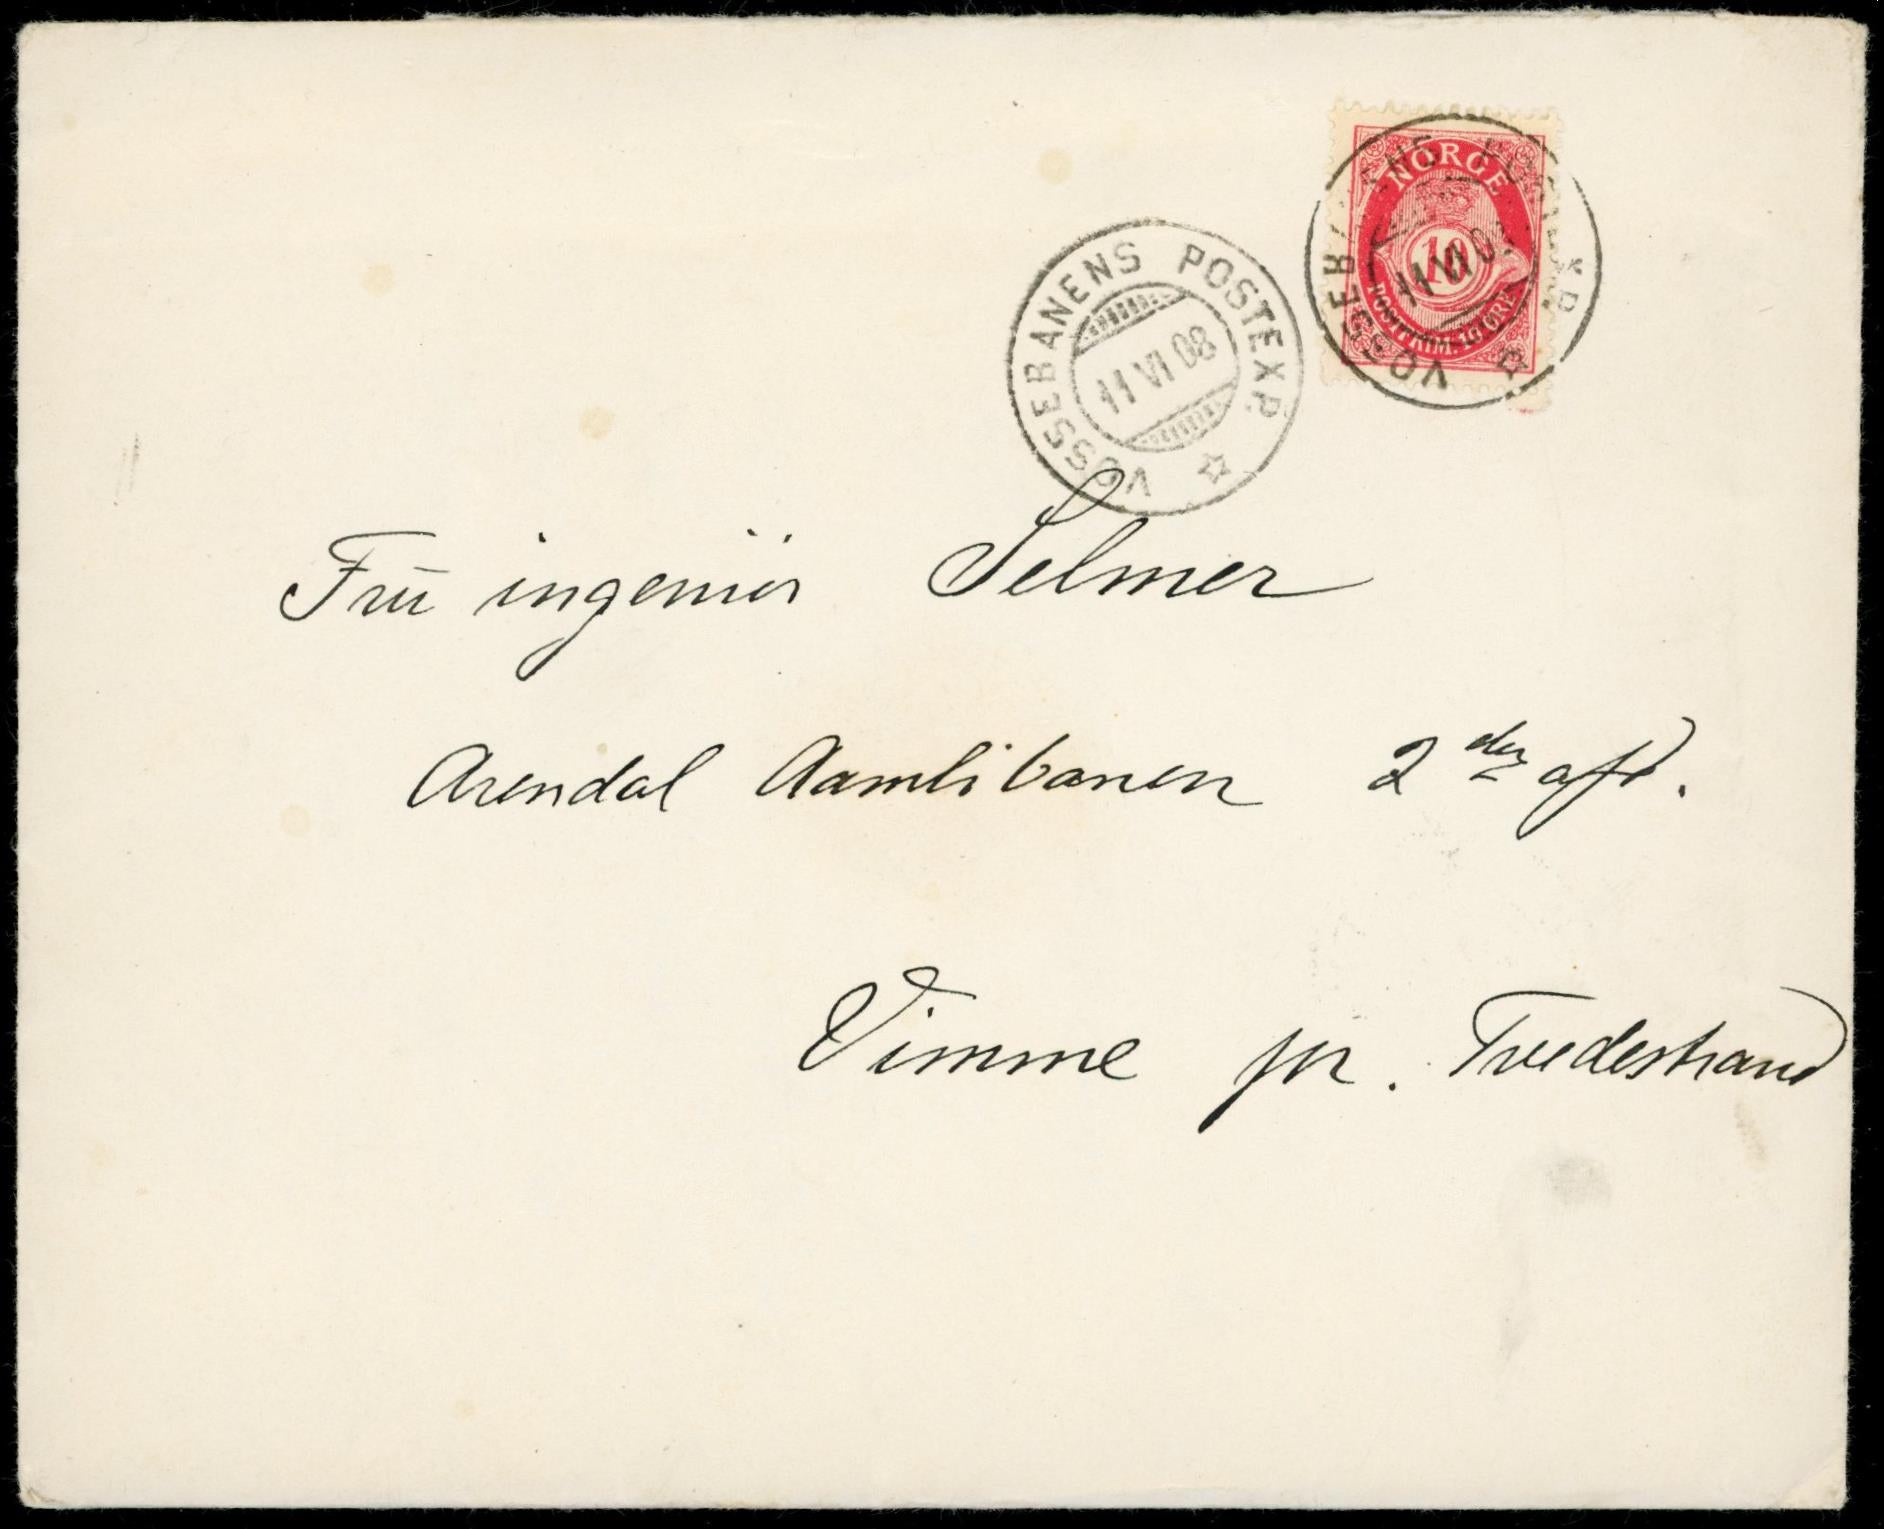 NORGE
10
POSTFRIM. 10 ØRE
VOSSEBANENS POSTEXP.
11 VI 08
VOSSEBANENS POSTEXP.
11 VI 08
Frū ingeniör Selmer
Arendal Aamlibanen 2den afd.
Vimme pr. Tvedestrand